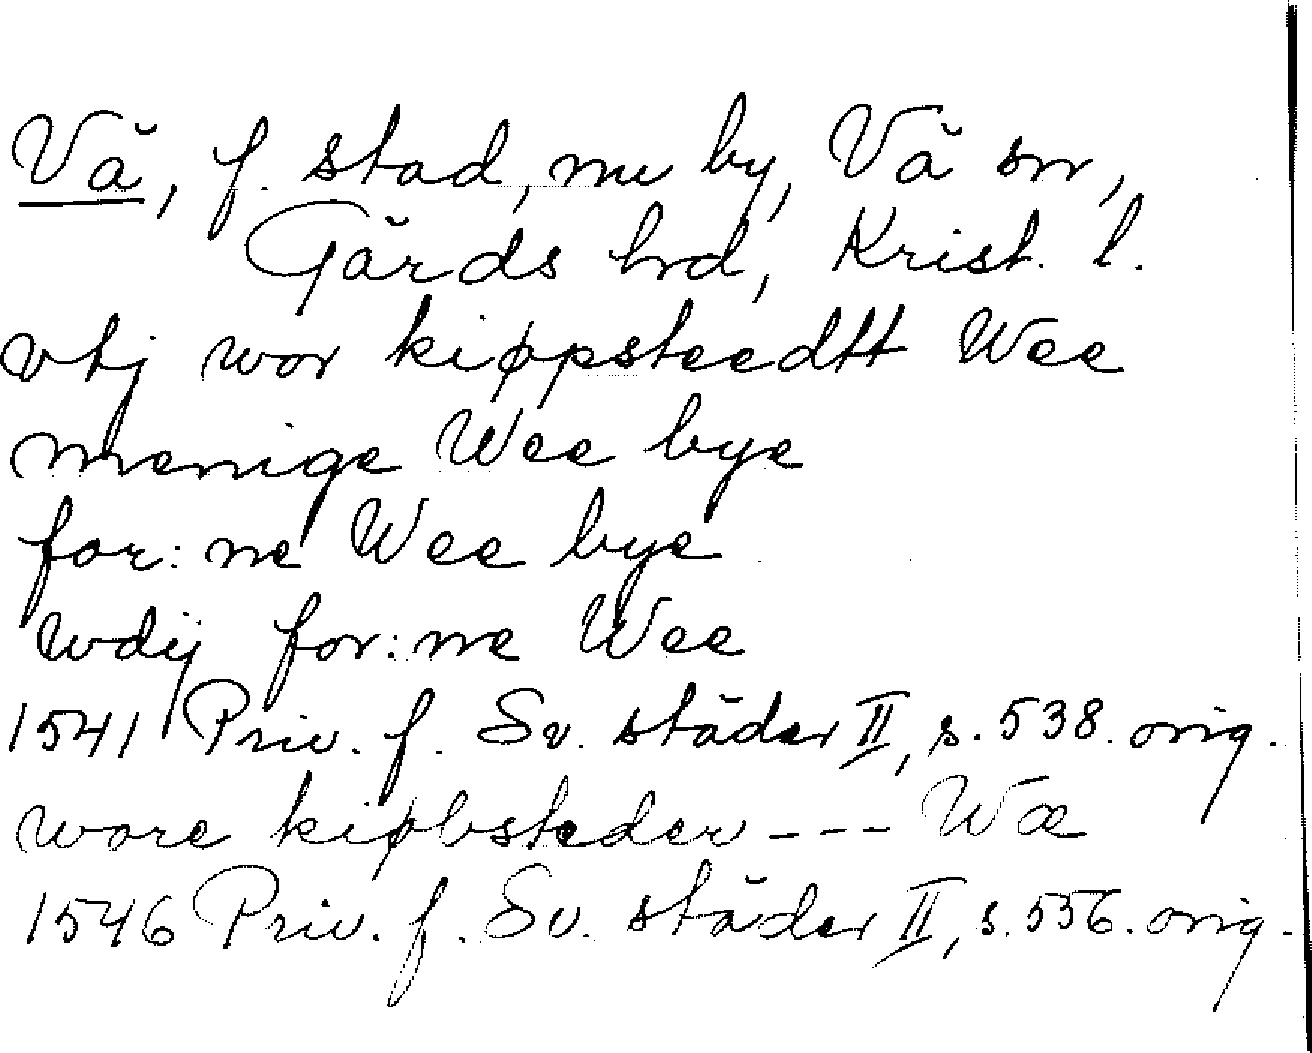 Vä, f. stad, nu by, Vä sn,
Gärds hd, Krist. l.
vtj wor kiøpsteedtt Wee
menige Wee bye
for: ne Wee bye
wdij for: ne Wee
1541 Priv. f. Sv. städer II, s. 538. orig.
wore kiøbsteder --- Wæ
1546 Priv. f. Sv. städer II, s. 556. orig.